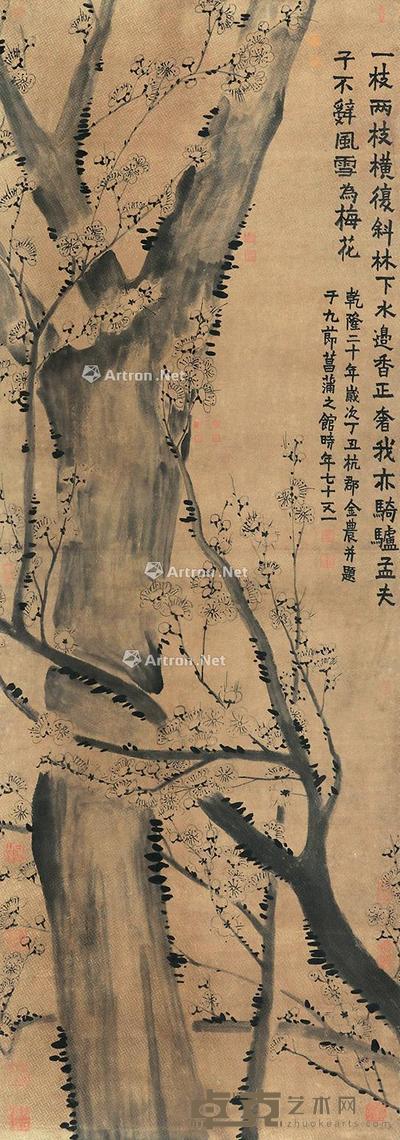 一枝兩枝橫復斜林下水邊香正奢我亦騎驢孟夫
子不辭風雪為梅花
乾隆二十年歲次丁丑杭郡金農并題
于九節菖蒲之館時年七十又一
Artron.Net
Artron.Net
Artron.Net
卓克艺术网
zhuokearts.com